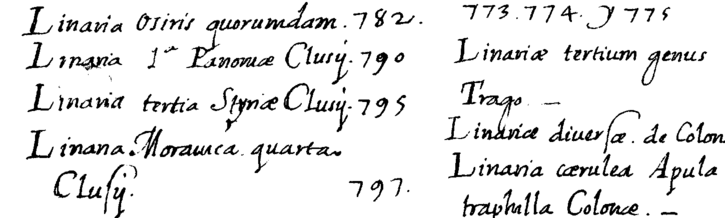 Linaria Osiris quorumdam. 782.
Linaria 1ª Panoniæ Clusij. 790
Linaria tertia Styriæ Clusij. 795
Linaria Moravica quarta
Clusij. 797.
773. 774. y 775
Linariæ tertium genus
Trago. —
Linariæ diversæ. de Colon
Linaria cærulea Apula
Colonæ. —